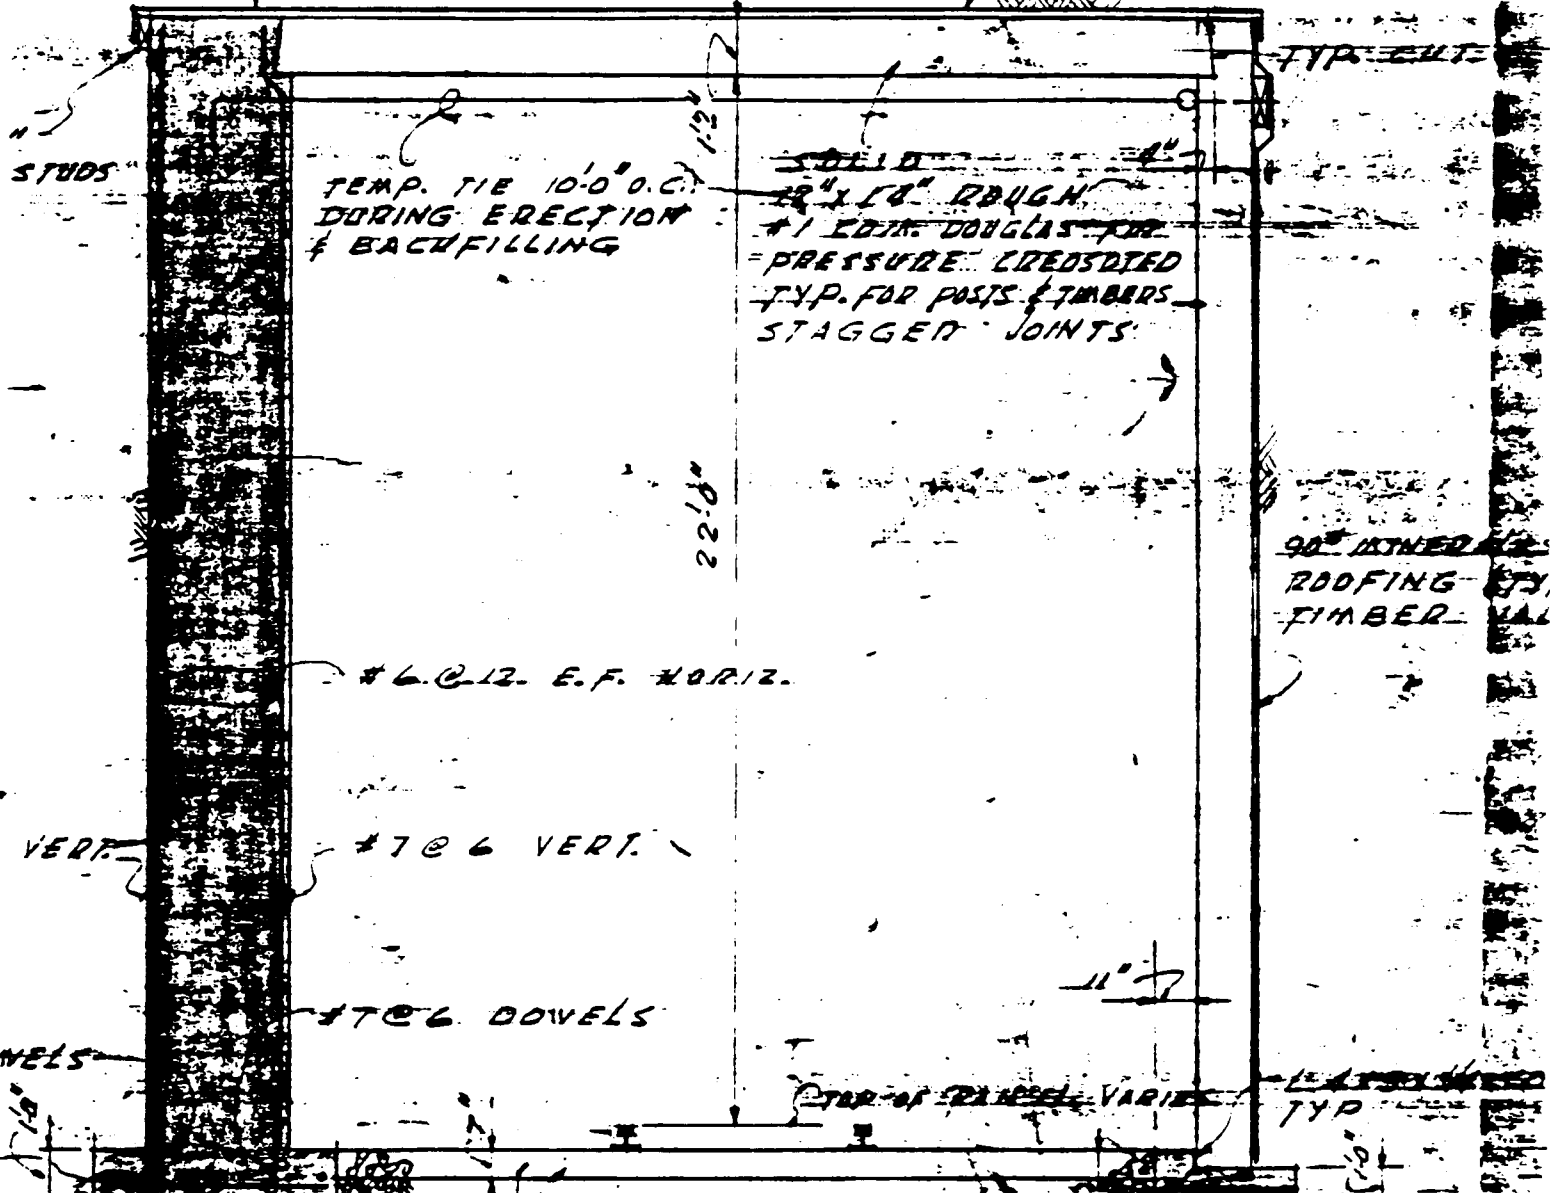 TYP. CUT
STUDS
1'-2"
4"
TEMP. TIE 10'-0" O.C.
DURING ERECTION
& BACKFILLING
SOLID
ROUGH
#1 COM. DOUGLAS FIR
PRESSURE CREOSOTED
TYP. FOR POSTS & TIMBERS
STAGGER JOINTS
22'-0"
90# MINERAL
ROOFING
TIMBER
#6 @ 12 E.F. HORIZ.
VERT.
#7 @ 6 VERT.
11"
#7 @ 6 DOWELS
WELS
TOP OF VARIES
TYP
1'-0"
1'-0"